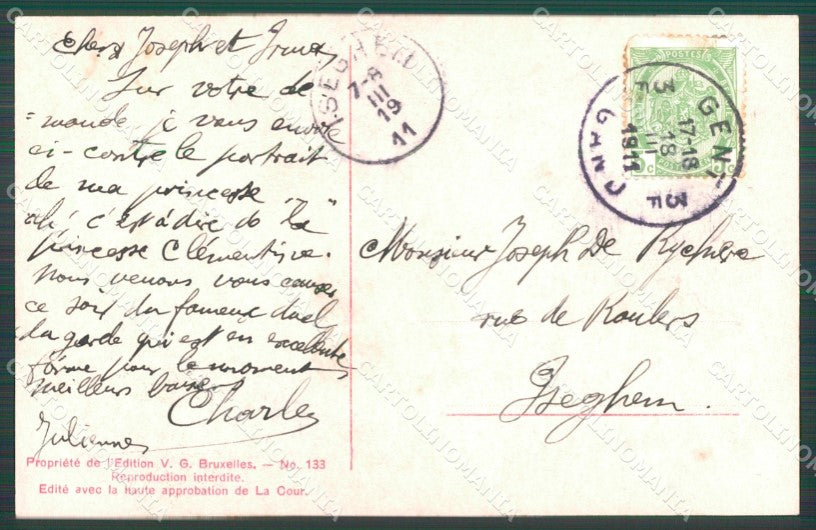 Chers Joseph et
Sur votre de
=mande je vous envoie
ci-contre le portrait
de ma princesse
ah! c'est à dire de "la"
princesse Clémentine.
Nous venons vous causer
ce soir du fameux duel
la garde qui est en excellente
forme pour le moment
meilleurs baisers
Charles
Juliennes
Propriété de l'Edition V. G. Bruxelles. — No. 133
Reproduction interdite.
Edité avec la haute approbation de La Cour.
ISEGHEM
7-8
III
19
11
POSTES
5 c
GENT 3F
17-18
18
III
1911
3F GAND
Monsieur Joseph De Ryckere
rue de Roulers
Iseghem.
CARTOLINOMANIA